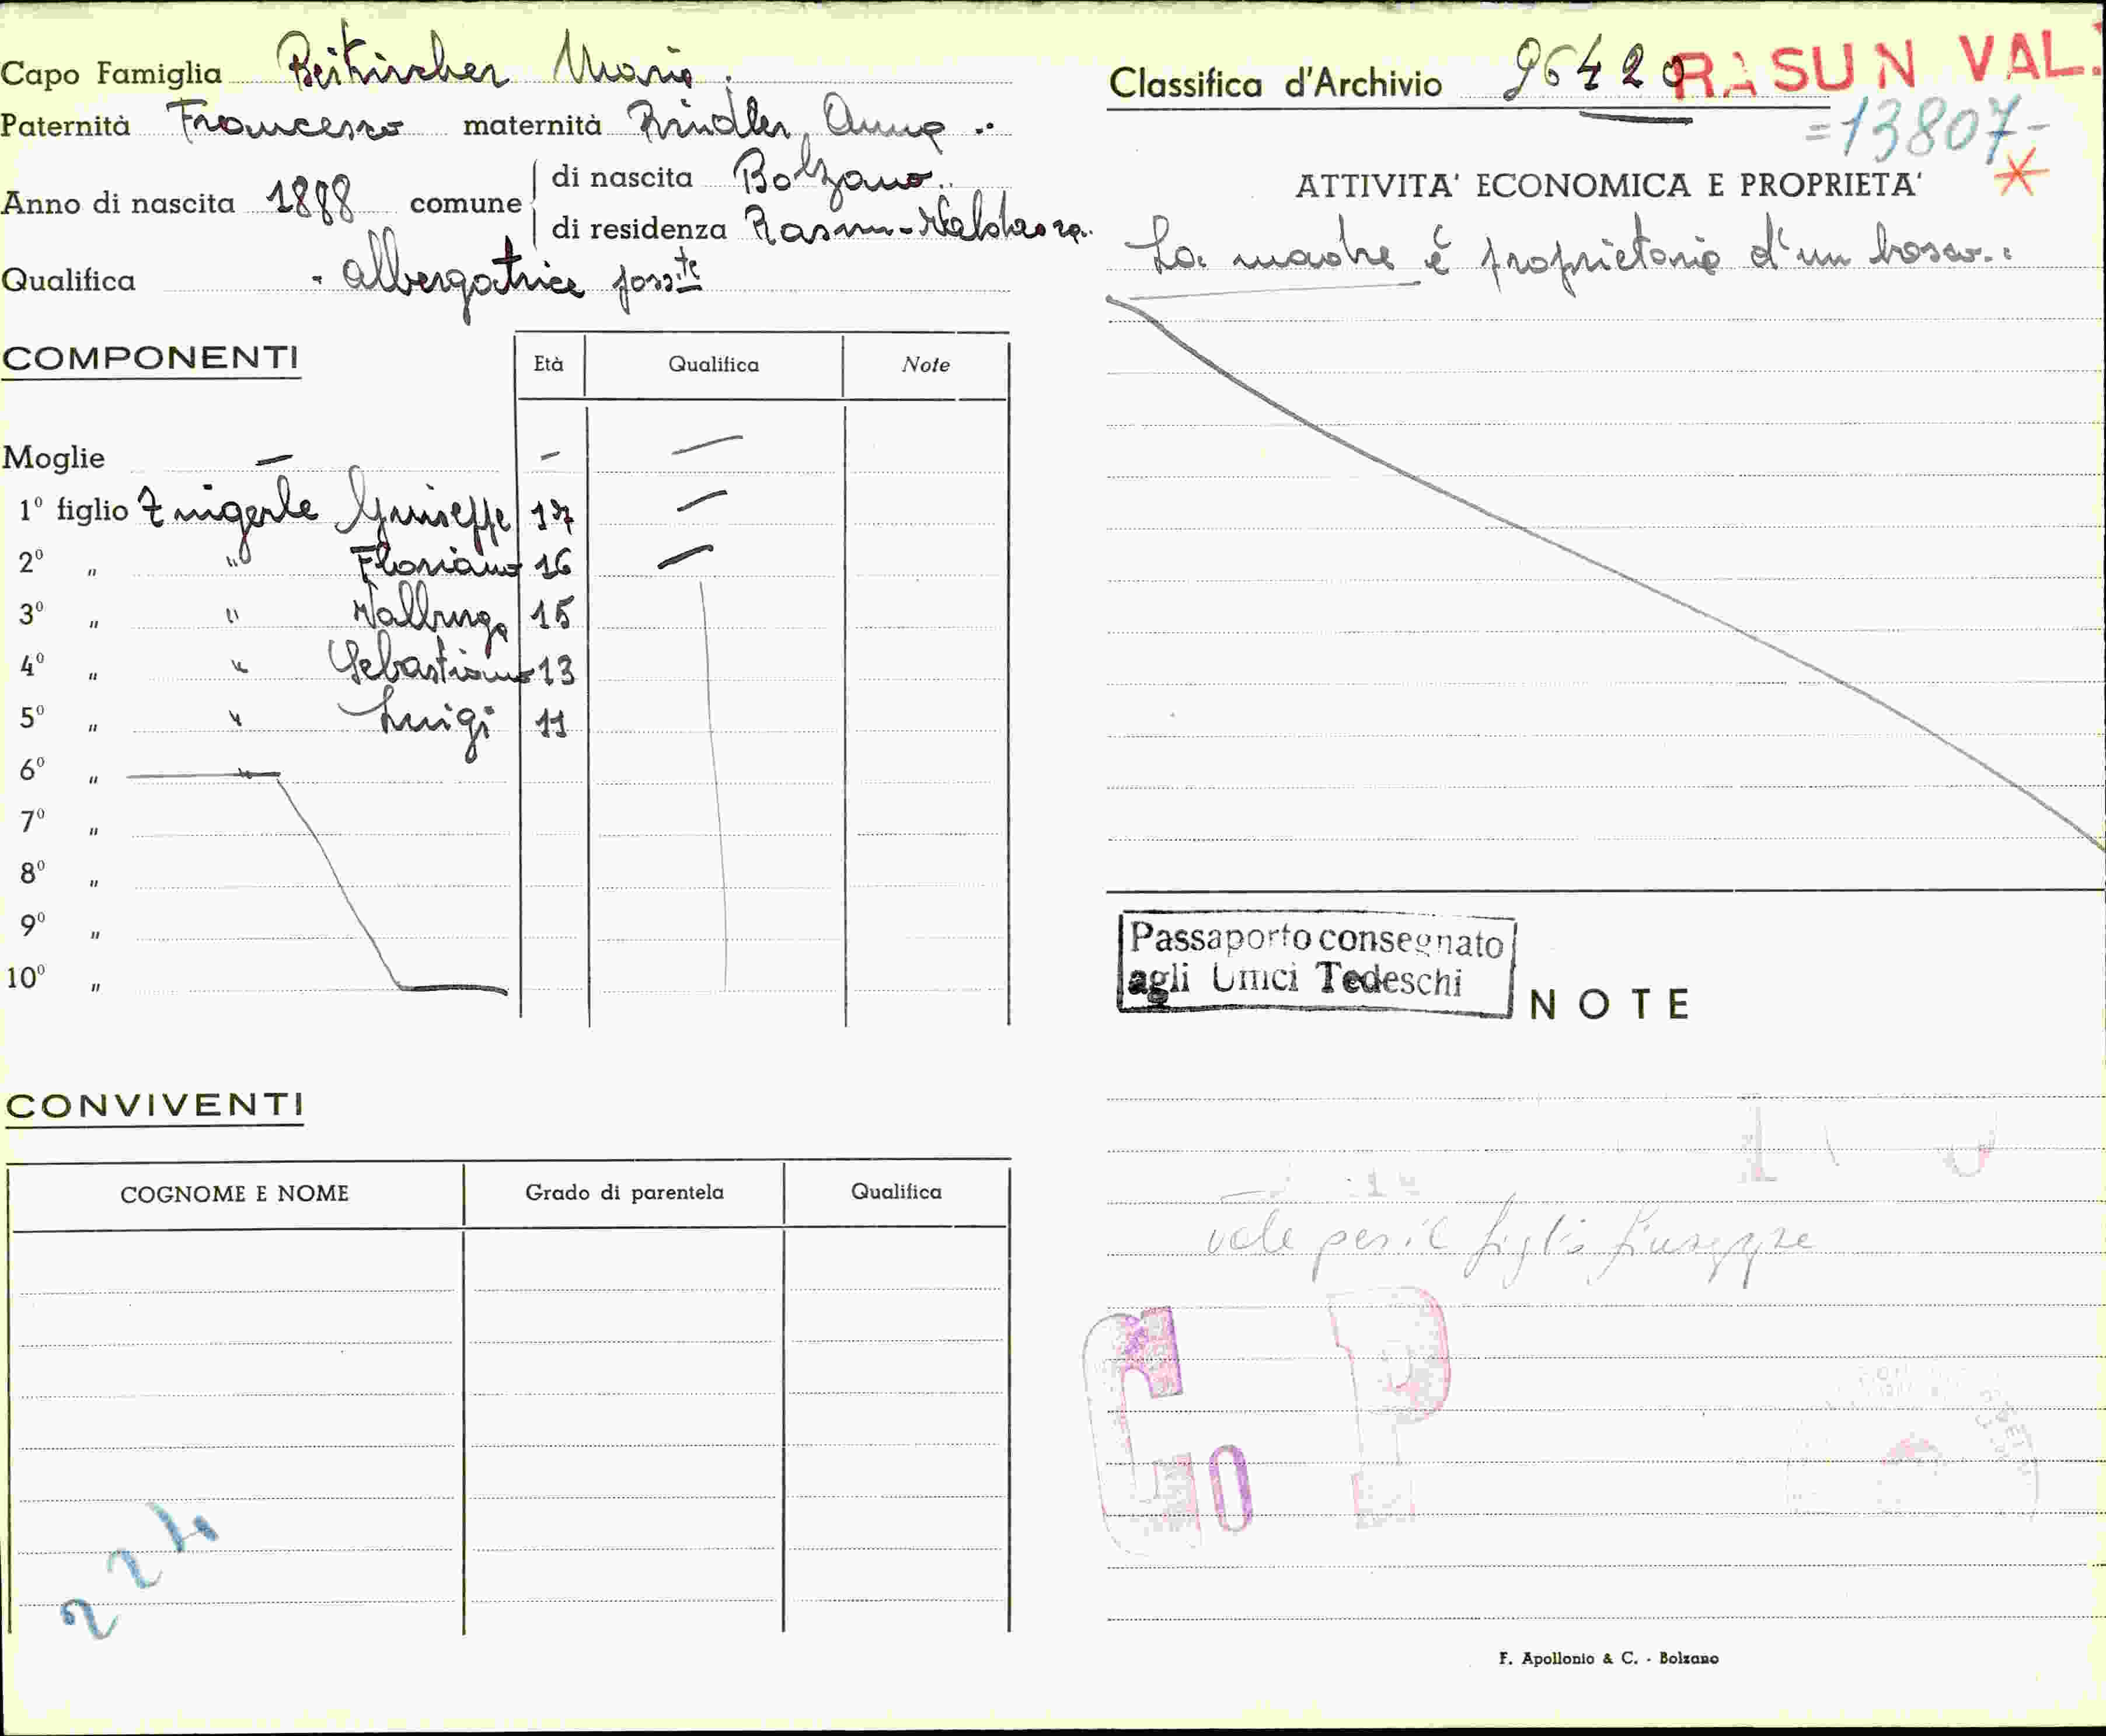 Capo Famiglia Beikircher Maria.
Paternità Francesco maternità Rindler Anna
Anno di nascita 1898 comune di nascita Bolzano
di residenza Rasun-Valdaora
Qualifica - albergatrice poss.te
COMPONENTI Età Qualifica Note
Moglie — — —
1º figlio Zingerle Giuseppe 17 —
2º „ " Floriano 16 —
3º „ " Walburga 15
4º „ " Sebastiano 13
5º „ " Luigi 11
6º „
7º „
8º „
9º „
10º „
CONVIVENTI
COGNOME E NOME Grado di parentela Qualifica
224
Classifica d'Archivio 96420 RASUN VAL.
=13807-
ATTIVITA' ECONOMICA E PROPRIETA'
La madre è proprietaria d'un bosco.
Passaporto consegnato
agli Uffici Tedeschi
NOTE
vale per il figlio Giuseppe
C P
10
F. Apollonio & C. - Bolzano